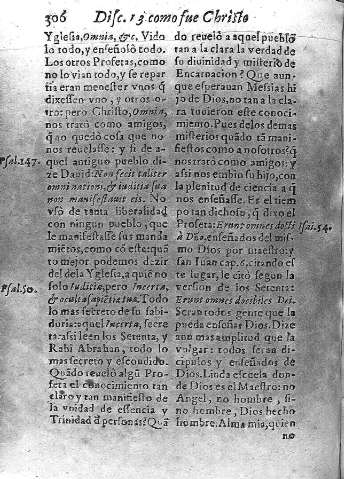 306 Disc. 13 como fue Christo
Yglesia, Omnia, &c. Vido
lo todo, y enseñolo todo.
Los otros Profetas, como
no lo vian todo, y se repar
tia eran menester vnos q̃
dixessen vno, y otros o-
tro: pero Christo, Omnia,
nos tratà como amigos,
q̃ no quedò cosa que no
nos reuelasse: y si de a-
quel antiguo pueblo di-
ze Dauid: Non fecit taliter
Psal. 147.
omni nationi, & iudicia sua
non manifestauit eis. No
vsò de tanta liberalidad
con ningun pueblo, que
le manifestasse sus manda
mietos, como có este: quã
to mejor podemos dezir
del de la Yglesia, a quiè no
solo Iudicia, pero Incerta,
Psal. 50.
& oculta sapiẽtiæ tuæ. Todo
lo mas secreto de su sabi-
duria: aquel Incerta, secre
ta: assi leen los Setenta, y
Rabi Abrahan, todo lo
mas secreto y escondido.
Quãdo reuelò algũ Pro-
feta el conocimiento tan
claro y tan manifiesto de
la vnidad de essencia y
Trinidad d̃ personas? Quã
do reuelò a aquel pueblo
tan a la clara la verdad de
su diuinidad y misterio de
Encarnacion? Que aun-
que esperauan Messias hi
jo de Dios, no tan a la cla-
ra tuuieron este conoci-
miento. Pues de los demas
misterios quãdo tã mani-
fiestos como a nosotros? q̃
nos tratò como amigos: y
assi nos embio su hijo, con
la plenitud de ciencia a q̃
nos enseñasse. Es el tiem
po tan dichoso, q̃ dixo el
Profeta: Erunt omnes docti
Isai. 54.
à Deo, enseñados del mis-
mo Dios por maestro: y
san Iuan cap. 6. citando es
te lugar, le citò segun la
version de los Setenta:
Erunt omnes docibiles Dei.
Seran todos gente que la
pueda enseñar Dios. Dize
aun mas amplitud que la
vulgar: todos seràn di-
cipulos y enseñados de
Dios. Linda escuela don-
de Dios es el Maestro: no
Angel, no hombre, si-
no hombre, Dios hecho
hombre. Alma mia, quien
no